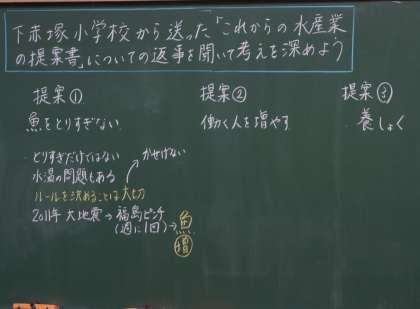 下赤塚小学校から送った「これからの水産業
の提案書」についての返事を聞いて考えを深めよう
提案①
魚をとりすぎない
・とりすぎだけではない
水温の問題もある
かせげない
ルールを決めることは大切
2011年 大地震→福島ピンチ
(週に1回)→魚
増
提案②
働く人を増やす
提案③
養しょく